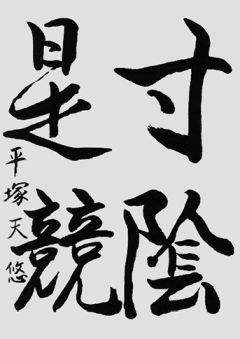 寸陰
是競
平塚天悠